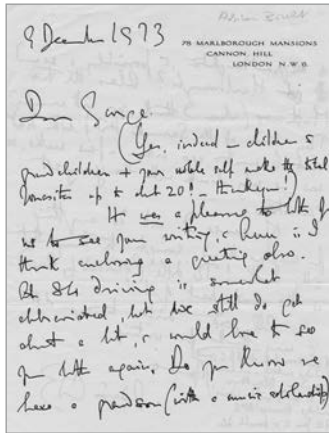 Adrian Boult
9 December 1973
78 MARLBOROUGH MANSIONS
CANNON HILL
LONDON N.W.6.
Dear
(Yes, indeed – children &
grandchildren + your noble self make the total
up to about 20! – thankyou!)
It was a pleasure to both of
us to see your writing, & here is I
think enclosing a greeting also.
At 84 driving is somewhat
abbreviated, but we still do get
about a bit, & would love to see
you both again. Do you know we
have a grandson (with a music scholarship)